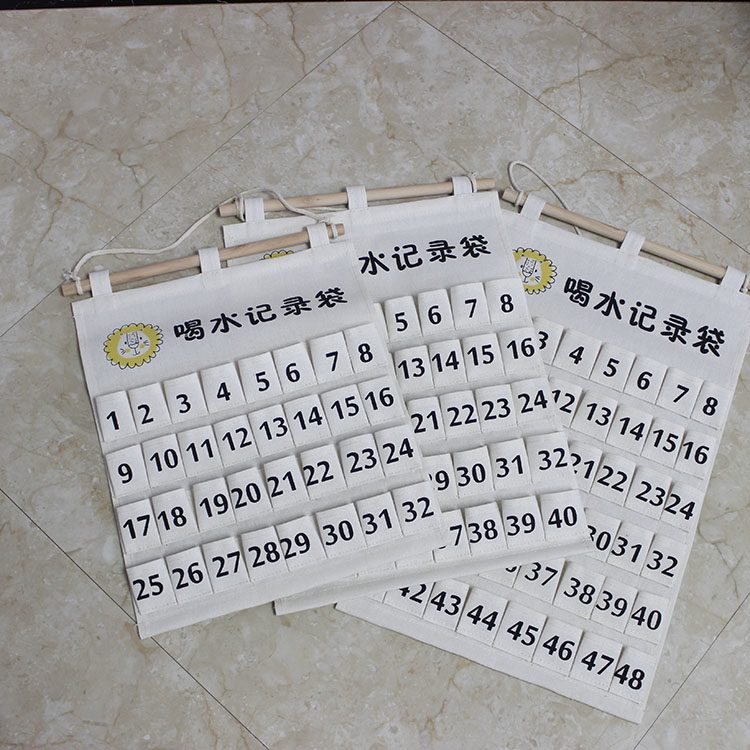 喝水记录袋
1 2 3 4 5 6 7 8
9 10 11 12 13 14 15 16
17 18 19 20 21 22 23 24
25 26 27 28 29 30 31 32
水记录袋
5 6 7 8
13 14 15 16
21 22 23 24
29 30 31 32
37 38 39 40
喝水记录袋
3 4 5 6 7 8
12 13 14 15 16
21 22 23 24
30 31 32
37 38 39 40
42 43 44 45 46 47 48